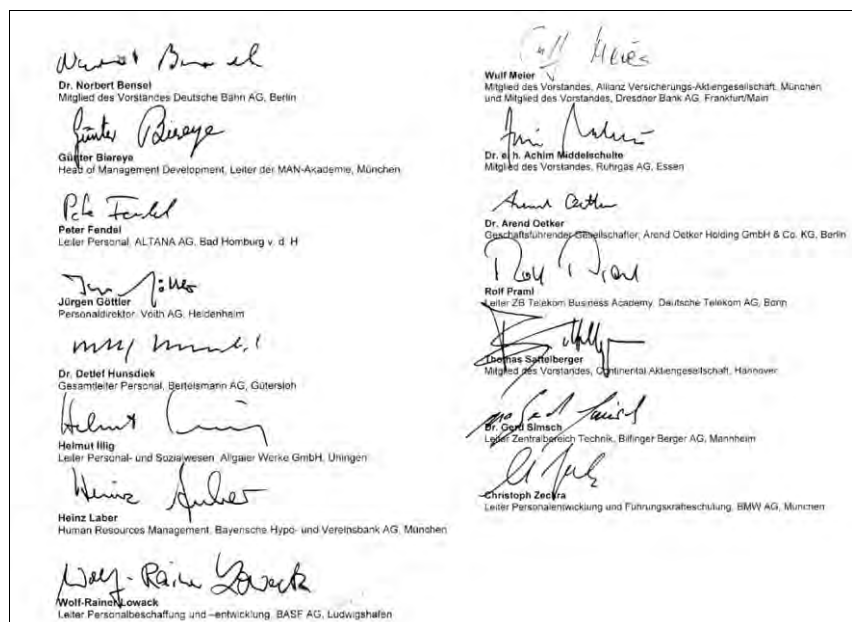 Dr. Norbert Bensel
Mitglied des Vorstandes Deutsche Bahn AG, Berlin
Günter Biereye
Günter Biereye
Head of Management Development, Leiter der MAN-Akademie, München
Peter Fendel
Leiter Personal, ALTANA AG, Bad Homburg v. d. H
Jürgen Göttler
Personaldirektor, Voith AG, Heidenheim
Dr. Detlef Hunsdiek
Gesamtleiter Personal, Bertelsmann AG, Gütersloh
Helmut
Helmut Illig
Leiter Personal- und Sozialwesen, Allgaier Werke GmbH, Uhingen
Heinz
Heinz Laber
Human Resources Management, Bayerische Hypo- und Vereinsbank AG, München
Wolf-Rainer Lowack
Wolf-Rainer Lowack
Leiter Personalbeschaffung und –entwicklung, BASF AG, Ludwigshafen
Wulf Meier
Mitglied des Vorstandes, Allianz Versicherungs-Aktiengesellschaft, München
und Mitglied des Vorstandes, Dresdner Bank AG, Frankfurt/Main
Dr. e. h. Achim Middelschulte
Mitglied des Vorstandes, Ruhrgas AG, Essen
Arend Oetker
Dr. Arend Oetker
Geschäftsführender Gesellschafter, Arend Oetker Holding GmbH & Co. KG, Berlin
Rolf
Rolf Praml
Leiter ZB Telekom Business Academy, Deutsche Telekom AG, Bonn
Thomas Sattelberger
Mitglied des Vorstandes, Continental Aktiengesellschaft, Hannover
Dr. Gerd Simsch
Leiter Zentralbereich Technik, Bilfinger Berger AG, Mannheim
Christoph Zeckra
Leiter Personalentwicklung und Führungskräfteschulung, BMW AG, München